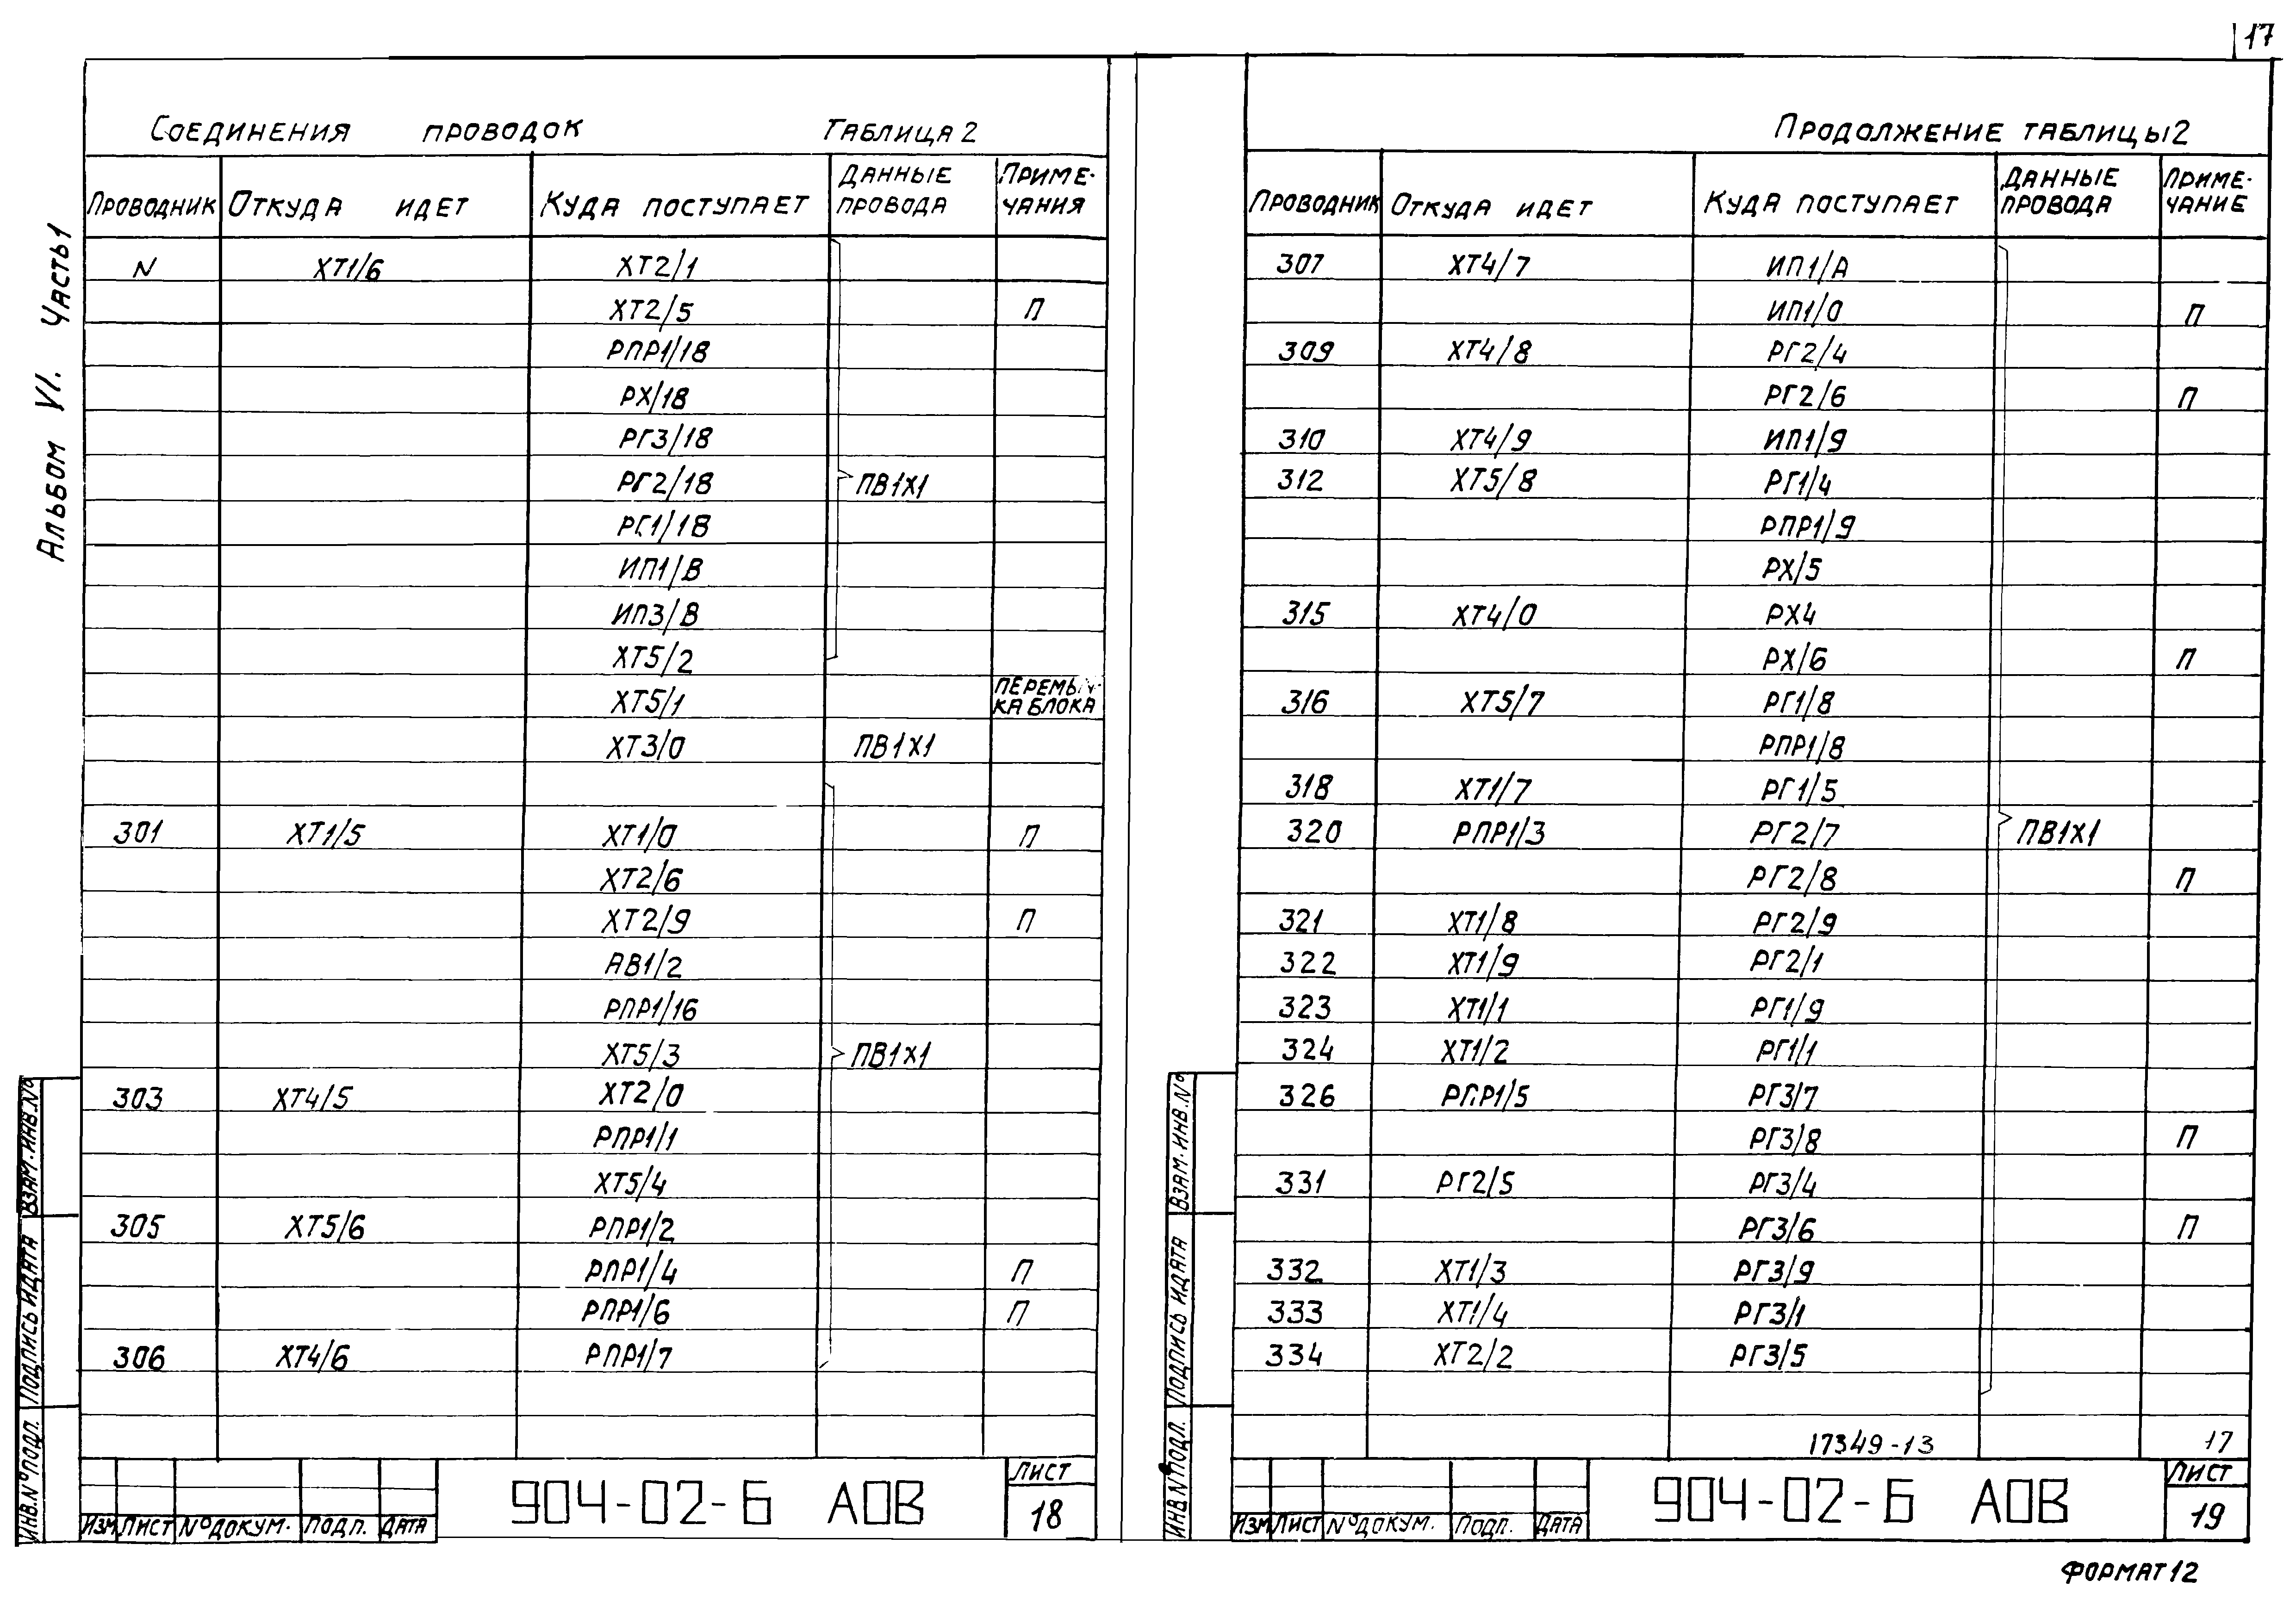 17
Альбом VI. Часть 1
Соединения проводок Таблица 2
Проводник Откуда идет Куда поступает Данные провода Примечания
N ХТ1/6 ХТ2/1
ХТ2/5 П
РПР1/18
РХ/18
РГ3/18
РГ2/18 ПВ1х1
РГ1/18
ИП1/В
ИП3/В
ХТ5/2
ХТ5/1 Перемычка блока
ХТ3/0 ПВ1х1
301 ХТ1/5 ХТ1/0 П
ХТ2/6
ХТ2/9 П
АВ1/2
РПР1/16
ХТ5/3 ПВ1х1
303 ХТ4/5 ХТ2/0
РПР1/1
ХТ5/4
305 ХТ5/6 РПР1/2
РПР1/4 П
РПР1/6 П
306 ХТ4/6 РПР1/7
Взам. инв. №
Подпись и дата
Инв. № подл.
Изм Лист № докум. Подп. Дата
904-02-Б АОВ
Лист
18
Продолжение таблицы 2
Проводник Откуда идет Куда поступает Данные провода Примечание
307 ХТ4/7 ИП1/А
ИП1/0 П
309 ХТ4/8 РГ2/4
РГ2/6 П
310 ХТ4/9 ИП1/9
312 ХТ5/8 РГ1/4
РПР1/9
РХ/5
315 ХТ4/0 РХ4
РХ/6 П
316 ХТ5/7 РГ1/8
РПР1/8
318 ХТ1/7 РГ1/5
320 РПР1/3 РГ2/7 ПВ1х1
РГ2/8 П
321 ХТ1/8 РГ2/9
322 ХТ1/9 РГ2/1
323 ХТ1/1 РГ1/9
324 ХТ1/2 РГ1/1
326 РПР1/5 РГ3/7
РГ3/8 П
331 РГ2/5 РГ3/4
РГ3/6 П
332 ХТ1/3 РГ3/9
333 ХТ1/4 РГ3/1
334 ХТ2/2 РГ3/5
17349-13 17
Взам. инв. №
Подпись и дата
Инв. № подл.
Изм Лист № докум. Подп. Дата
904-02-Б АОВ
Лист
19
Формат 12